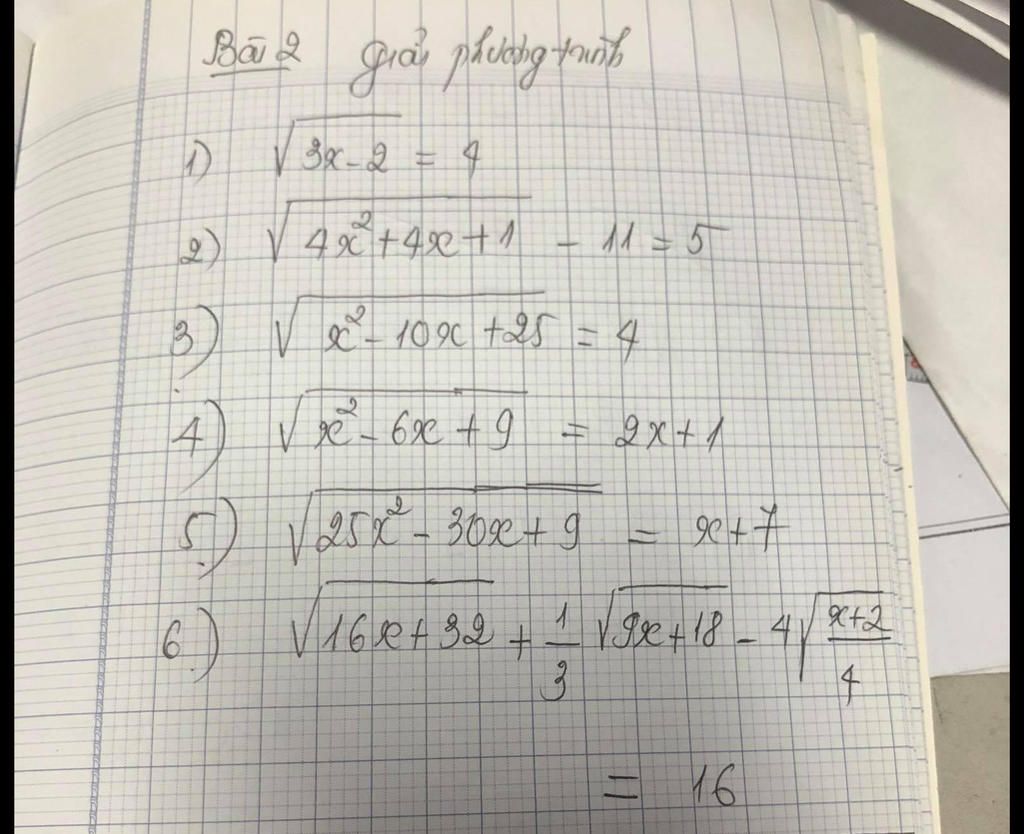 Bài 2 Giải phương trình
1) √(3x - 2) = 4
2) √(4x² + 4x + 1) - 11 = 5
3) √(x² - 10x + 25) = 4
4) √(x² - 6x + 9) = 2x + 1
5) √(25x² - 30x + 9) = x + 7
6) √(16x + 32) + 1/3 √(9x + 18) - 4√((x+2)/4)
= 16